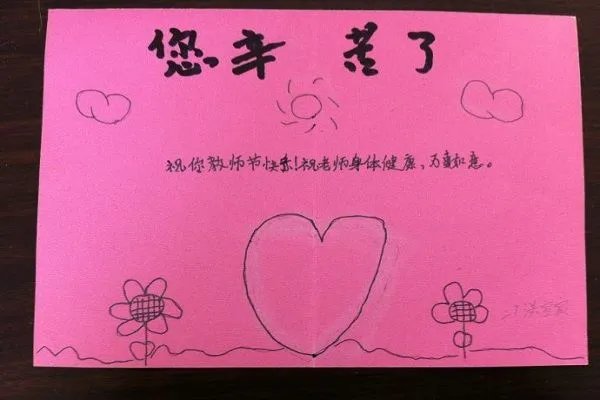 您辛苦了
祝你教师节快乐!祝老师身体健康、万事如意。